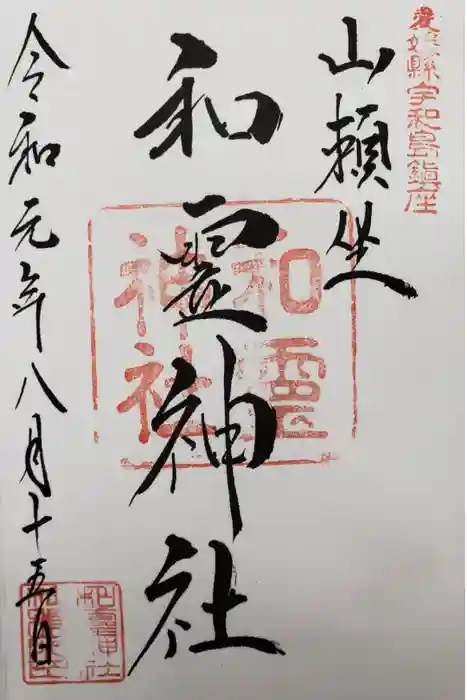 愛媛縣宇和島鎮座
山頼坐
和霊神社
和霊神社
令和元年八月十五日
和霊神社